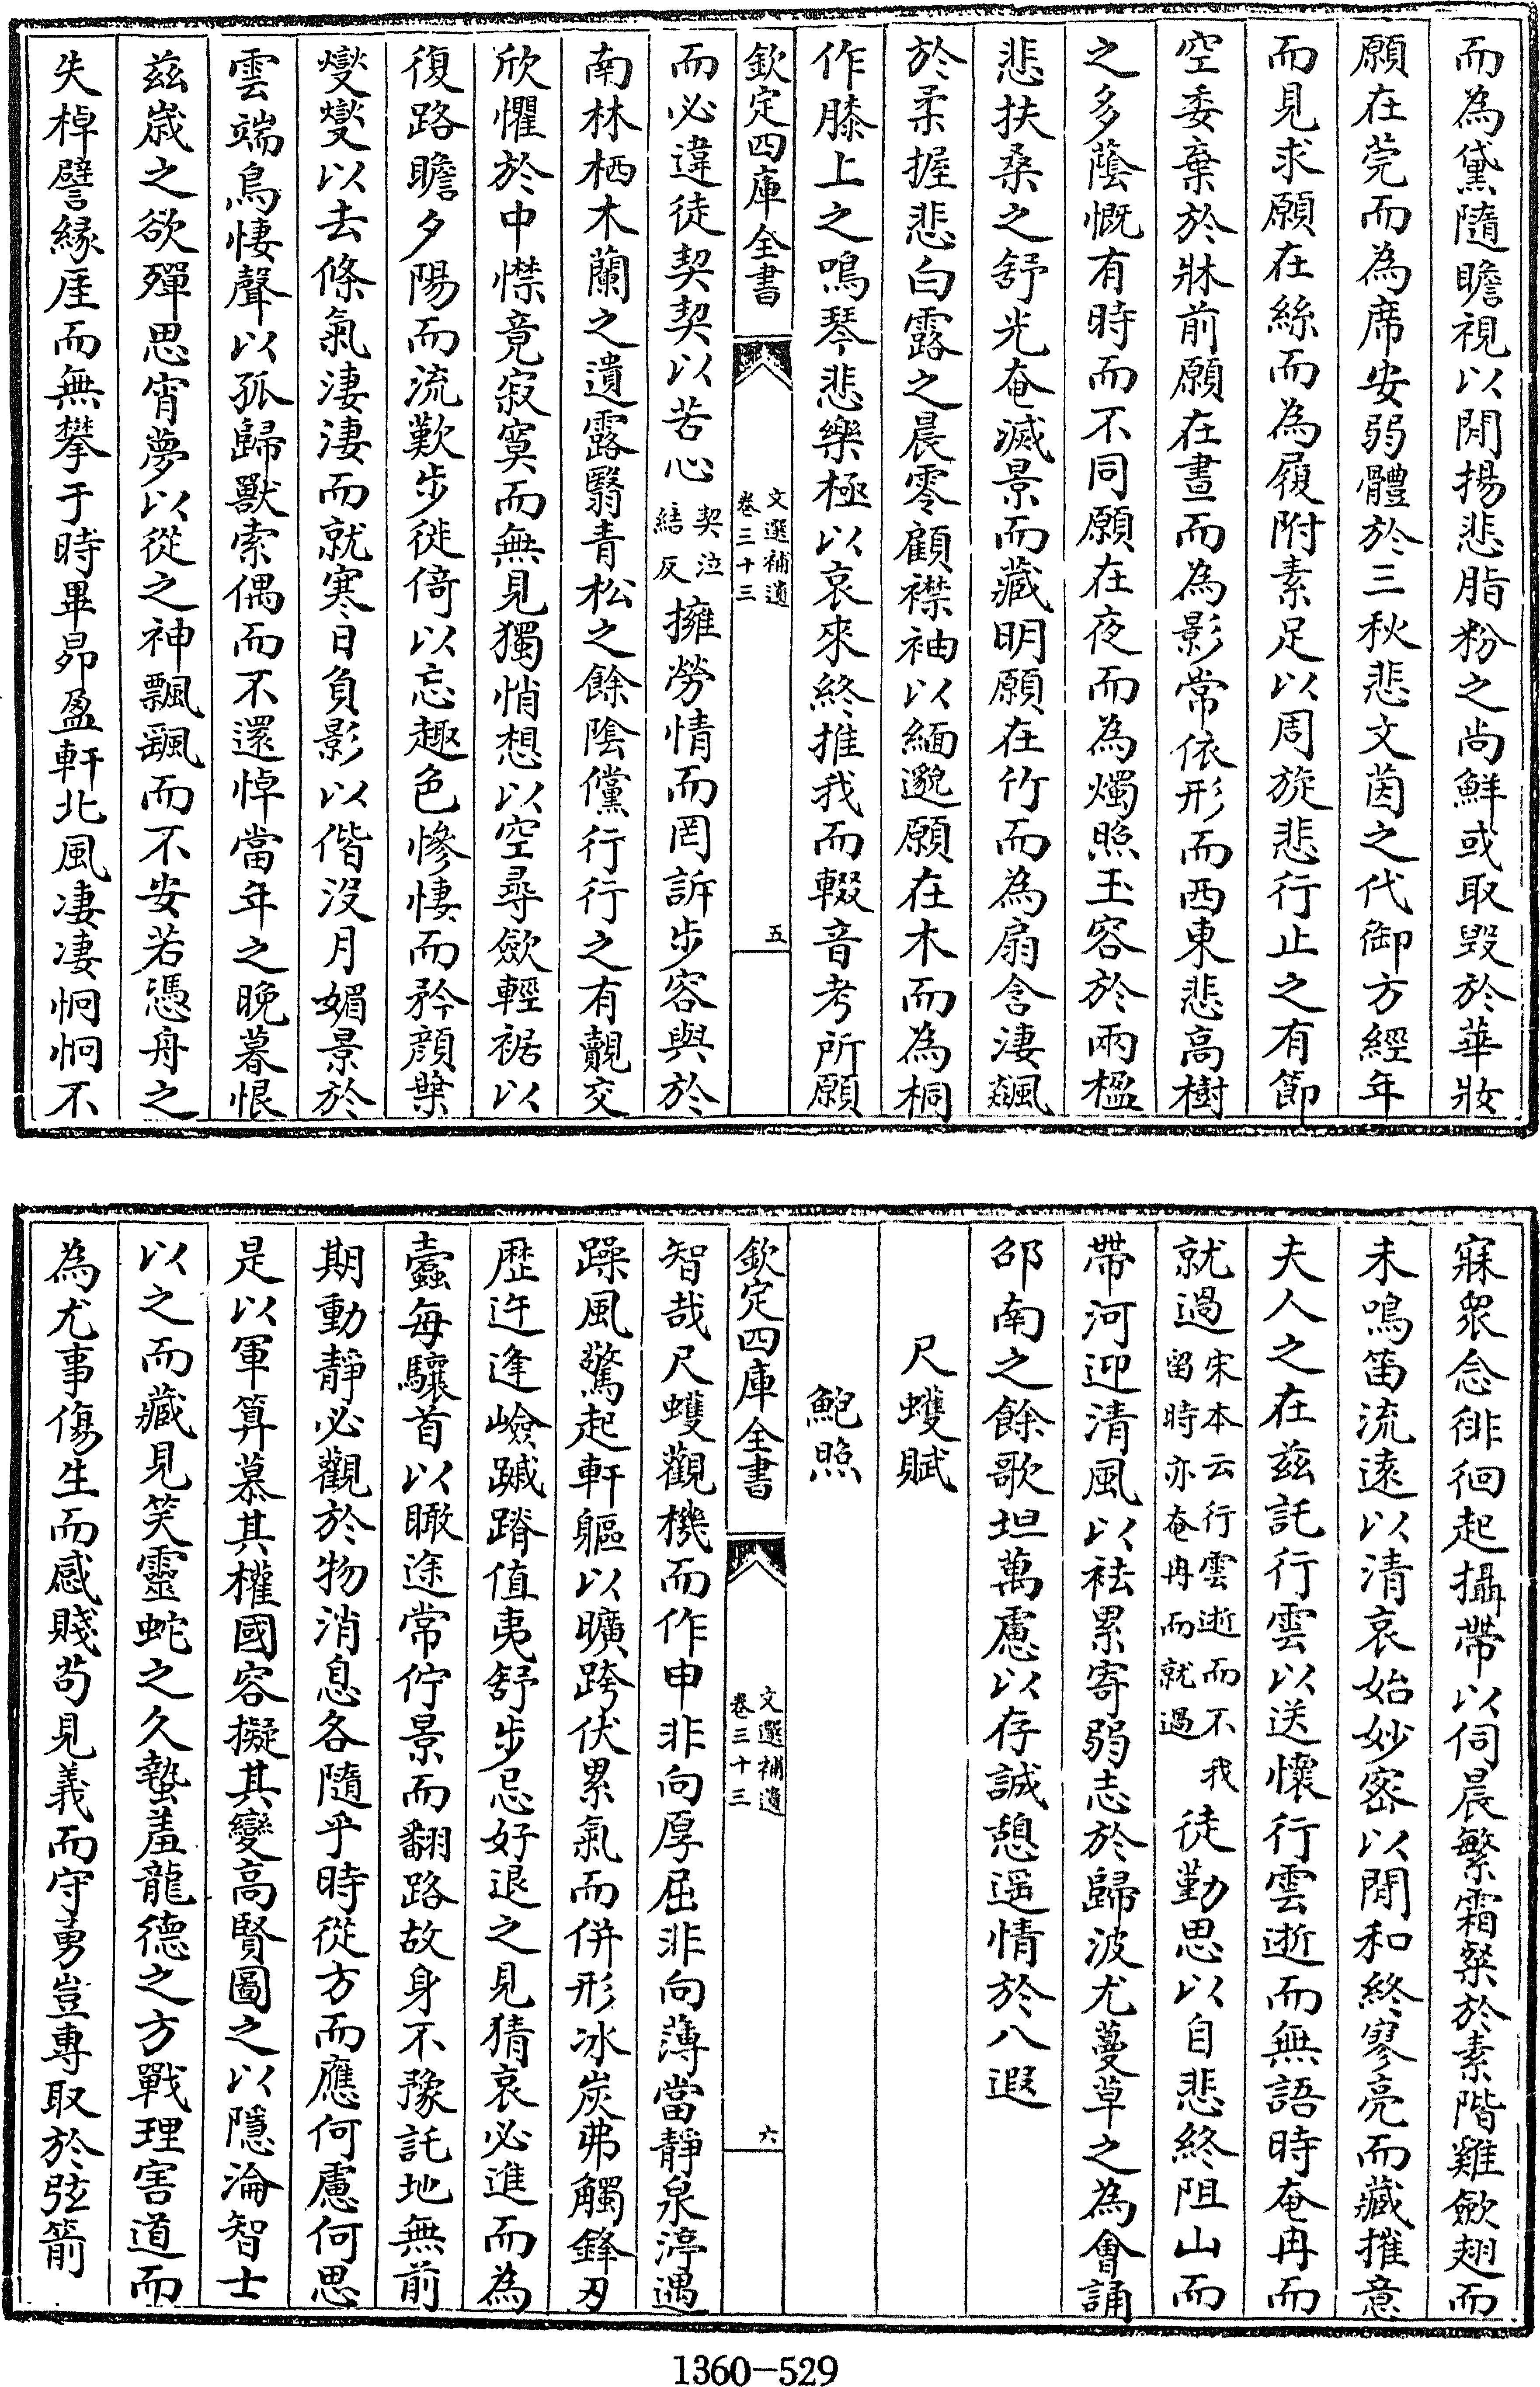 而為黛隨瞻視以閒揚悲脂粉之尚鮮或取毀於華妝
願在莞而為席安弱體於三秋悲文茵之代御方經年
而見求願在絲而為履附素足以周旋悲行止之有節
空委棄於牀前願在晝而為影常依形而西東悲高樹
之多蔭慨有時而不同願在夜而為燭照玉容於兩楹
悲扶桑之舒光奄滅景而藏明願在竹而為扇含淒飆
於柔握悲白露之晨零顧襟袖以緬邈願在木而為桐
作膝上之鳴琴悲樂極以哀來終推我而輟音考所願
欽定四庫全書
文選補遺
卷三十三
五
而必違徒契契以苦心契泣結反擁勞情而罔訴步容與於
南林栖木蘭之遺露翳青松之餘陰儻行行之有覿交
欣懼於中襟竟寂寞而無見獨悄想以空尋歛輕裾以
復路瞻夕陽而流歎步徙倚以忘趣色慘悽而矜顔葉
燮燮以去條氣淒淒而就寒日負影以偕沒月媚景於
雲端鳥悽聲以孤歸獸索偶而不還悼當年之晚暮恨
兹嵗之欲殫思宵夢以從之神飄颻而不安若憑舟之
失棹譬縁厓而無攀于時畢昴盈軒北風凄凄恫恫不
寐衆念徘徊起攝帶以伺晨繁霜粲於素階雞歛翅而
未鳴笛流逺以清哀始妙宻以閒和終寥亮而藏摧意
夫人之在兹託行雲以送懷行雲逝而無語時奄冉而
就過宋本云行雲逝而不我留時亦奄冉而就過徒勤思以自悲終阻山而
帶河迎清風以袪累寄弱志於歸波尤蔓草之為會誦
邵南之餘歌坦萬慮以存誠憩遥情於八遐
尺蠖賦
鮑照
欽定四庫全書
文選補遺
卷三十三
六
智哉尺蠖觀機而作申非向厚屈非向薄當靜泉渟遇
躁風驚起軒軀以曠跨伏累氣而併形冰炭弗觸鋒刃
歴迕逢嶮蹴蹐值夷舒步忌好退之見猜哀必進而為
蠹每驤首以瞰途常佇景而翻路故身不豫託地無前
期動靜必觀於物消息各隨乎時從方而應何慮何思
是以軍算慕其權國容擬其變高賢圖之以隱淪智士
以之而藏見笑靈蛇之久蟄羞龍德之方戰理害道而
為尤事傷生而感賤苟見義而守勇豈專取於弦箭
1360-529